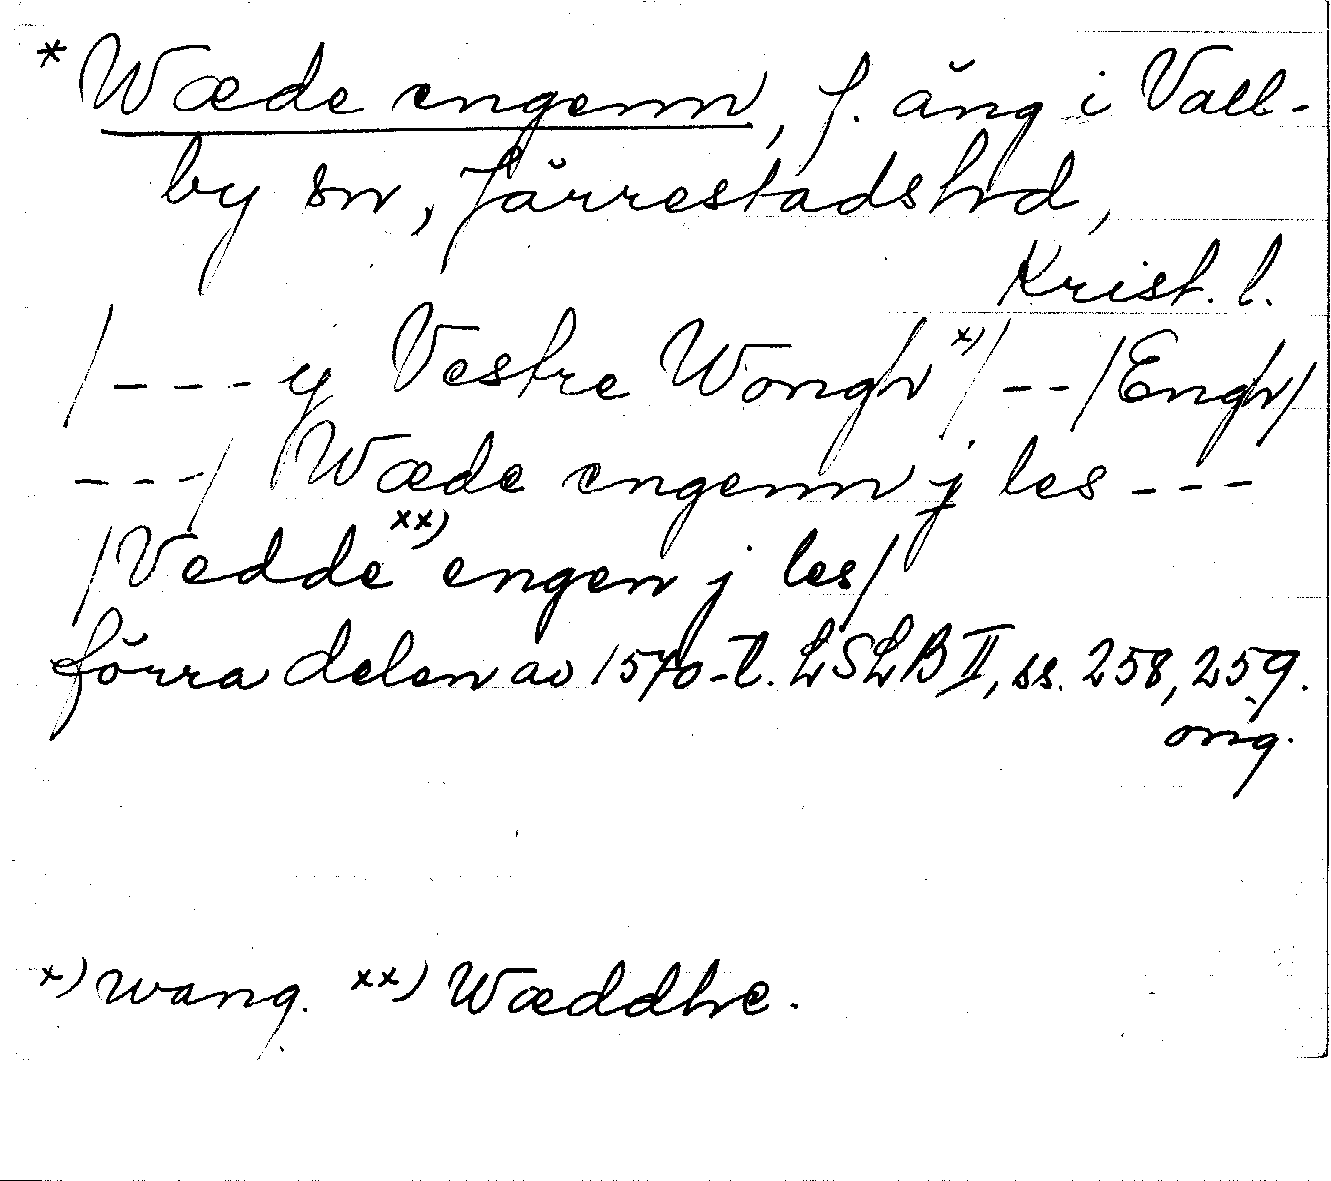 * Wæde engenn, f. äng i Vall-
by sn, Järrestads hd,
Krist. l.
/---y Vestre Wongh x)/--/Engh/
---/ Wæde engenn j les ---
/Vedde xx) engen j les/
förra delen av 1570-t. LSLB II, ss. 258, 259.
orig.
x) wang. xx) Wæddhe.